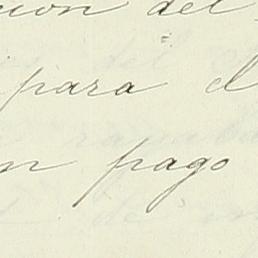 ción del
para el
n pago